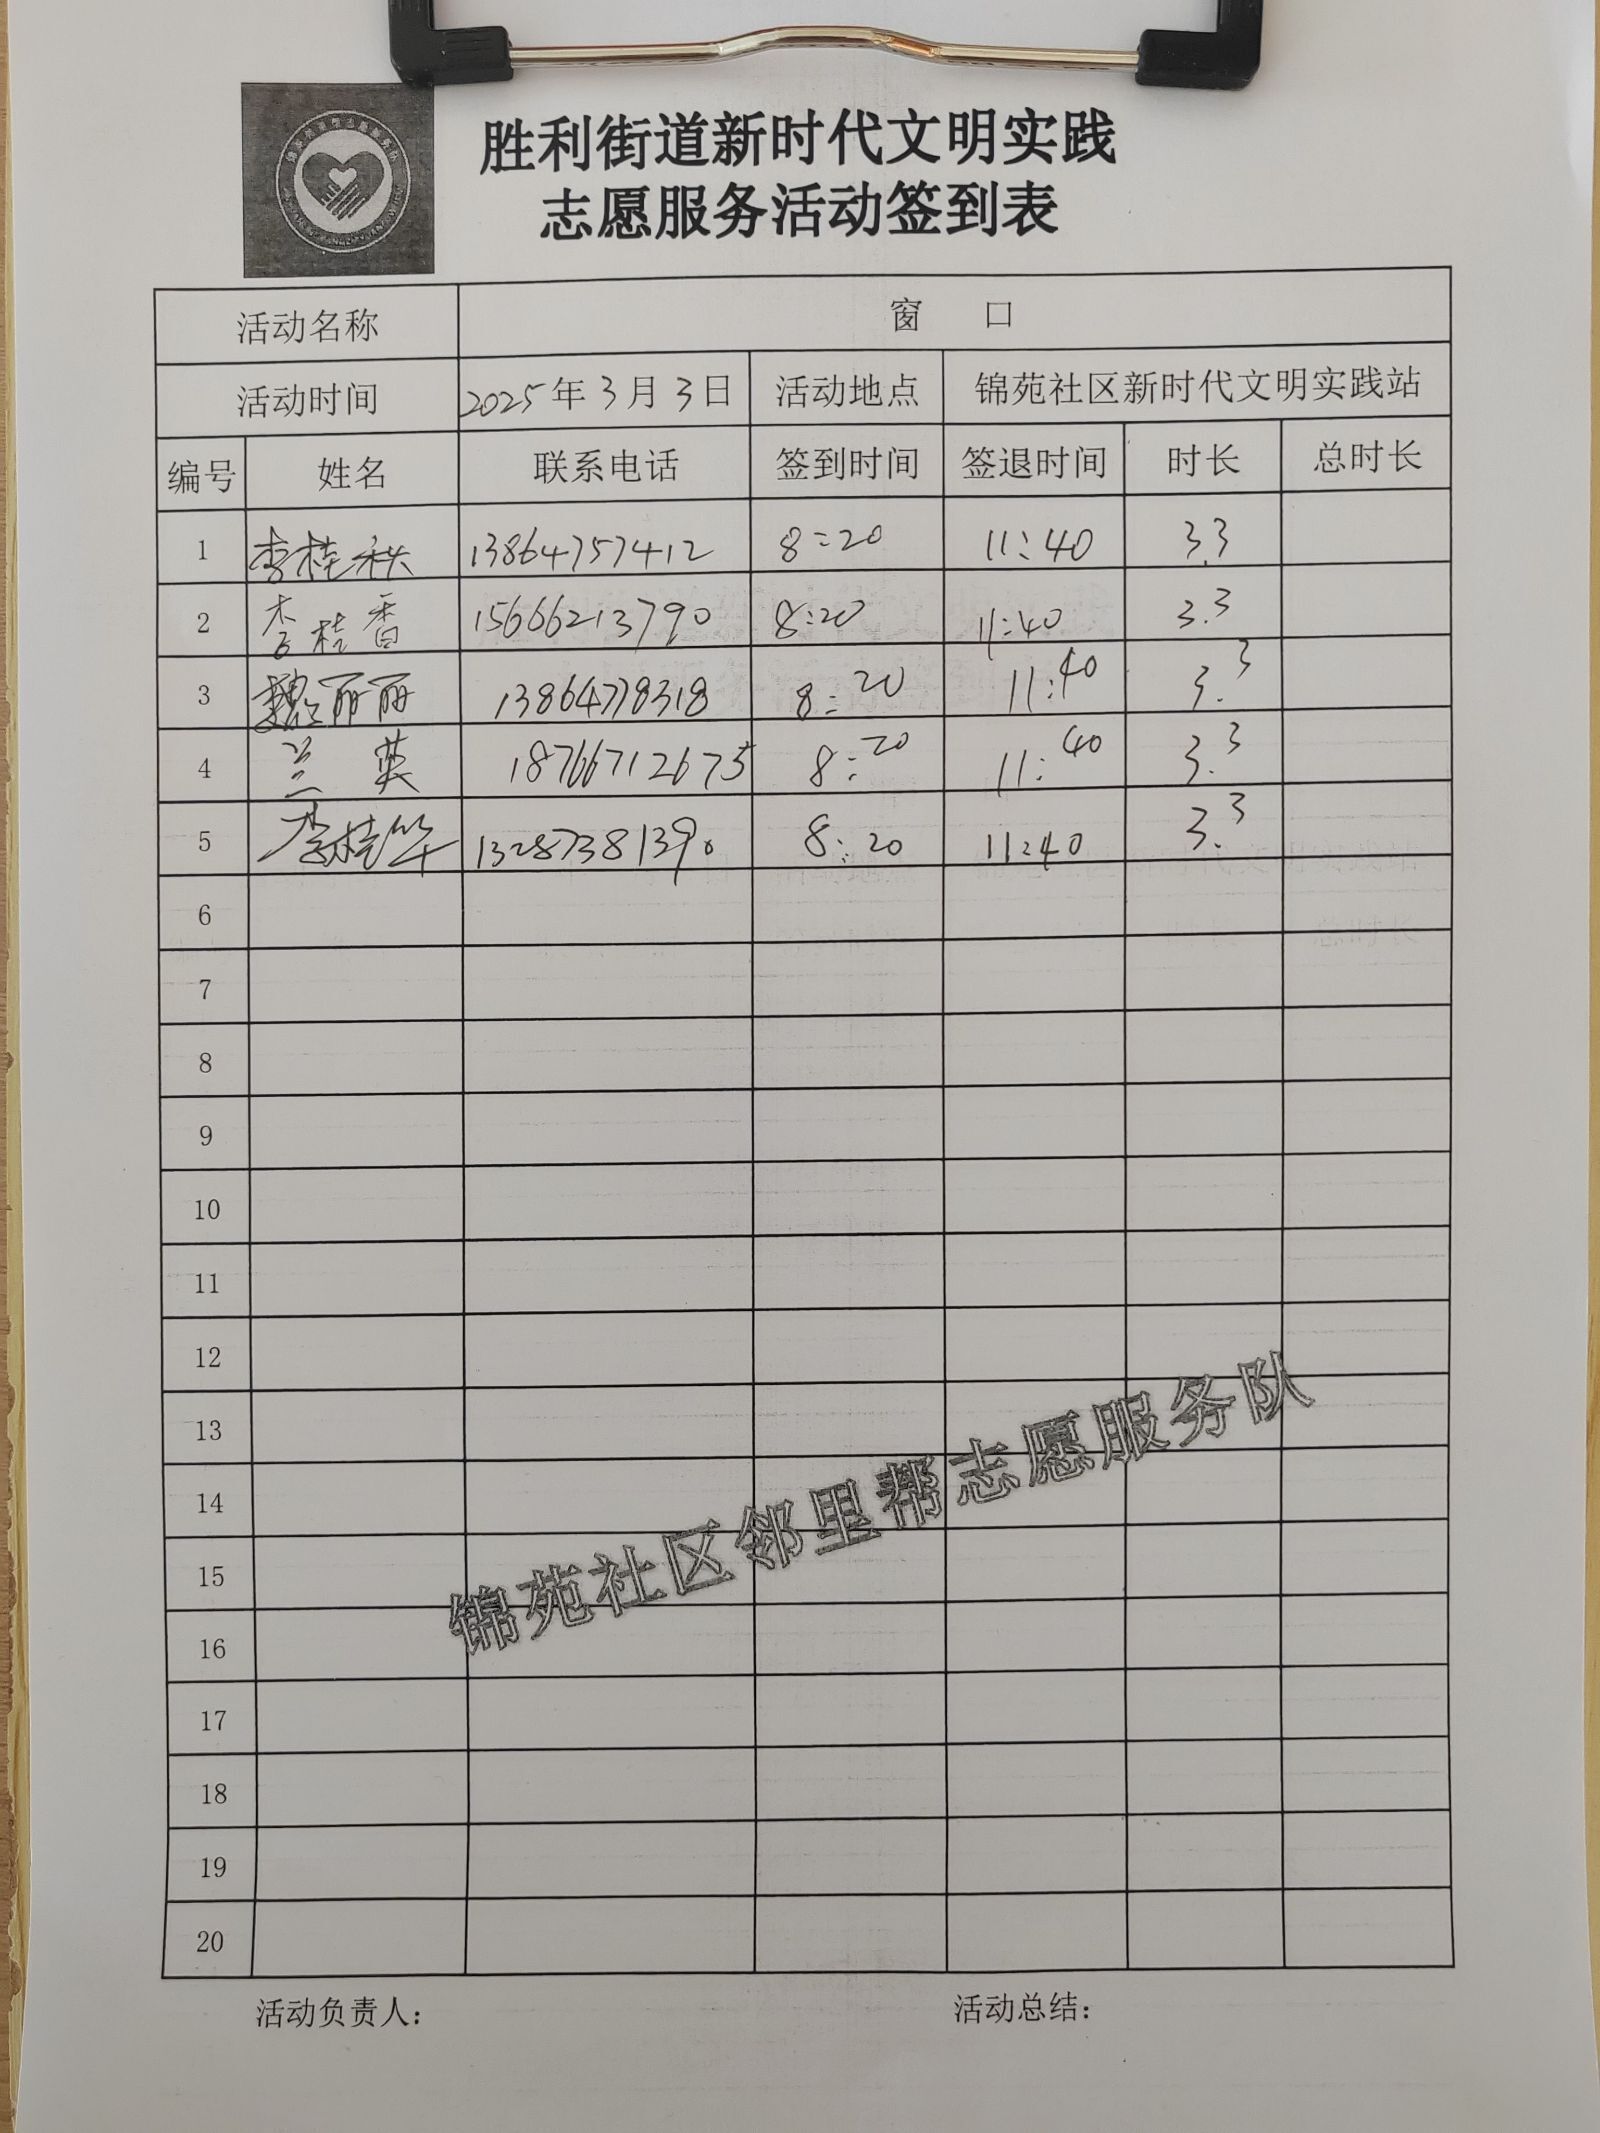 胜利街道新时代文明实践
志愿服务活动签到表
活动名称 窗 口
活动时间 2025年3月3日 活动地点 锦苑社区新时代文明实践站
编号 姓名 联系电话 签到时间 签退时间 时长 总时长
1 李桂秋 13864757412 8:20 11:40 3.3
2 李桂香 15666213790 8:20 11:40 3.3
3 魏丽丽 13864778318 8:20 11:40 3.3
4 兰英 18766712675 8:20 11:40 3.3
5 李桂华 13287381390 8:20 11:40 3.3
6
7
8
9
10
11
12
13
14
15
16
17
18
19
20
锦苑社区邻里帮志愿服务队
活动负责人: 活动总结: